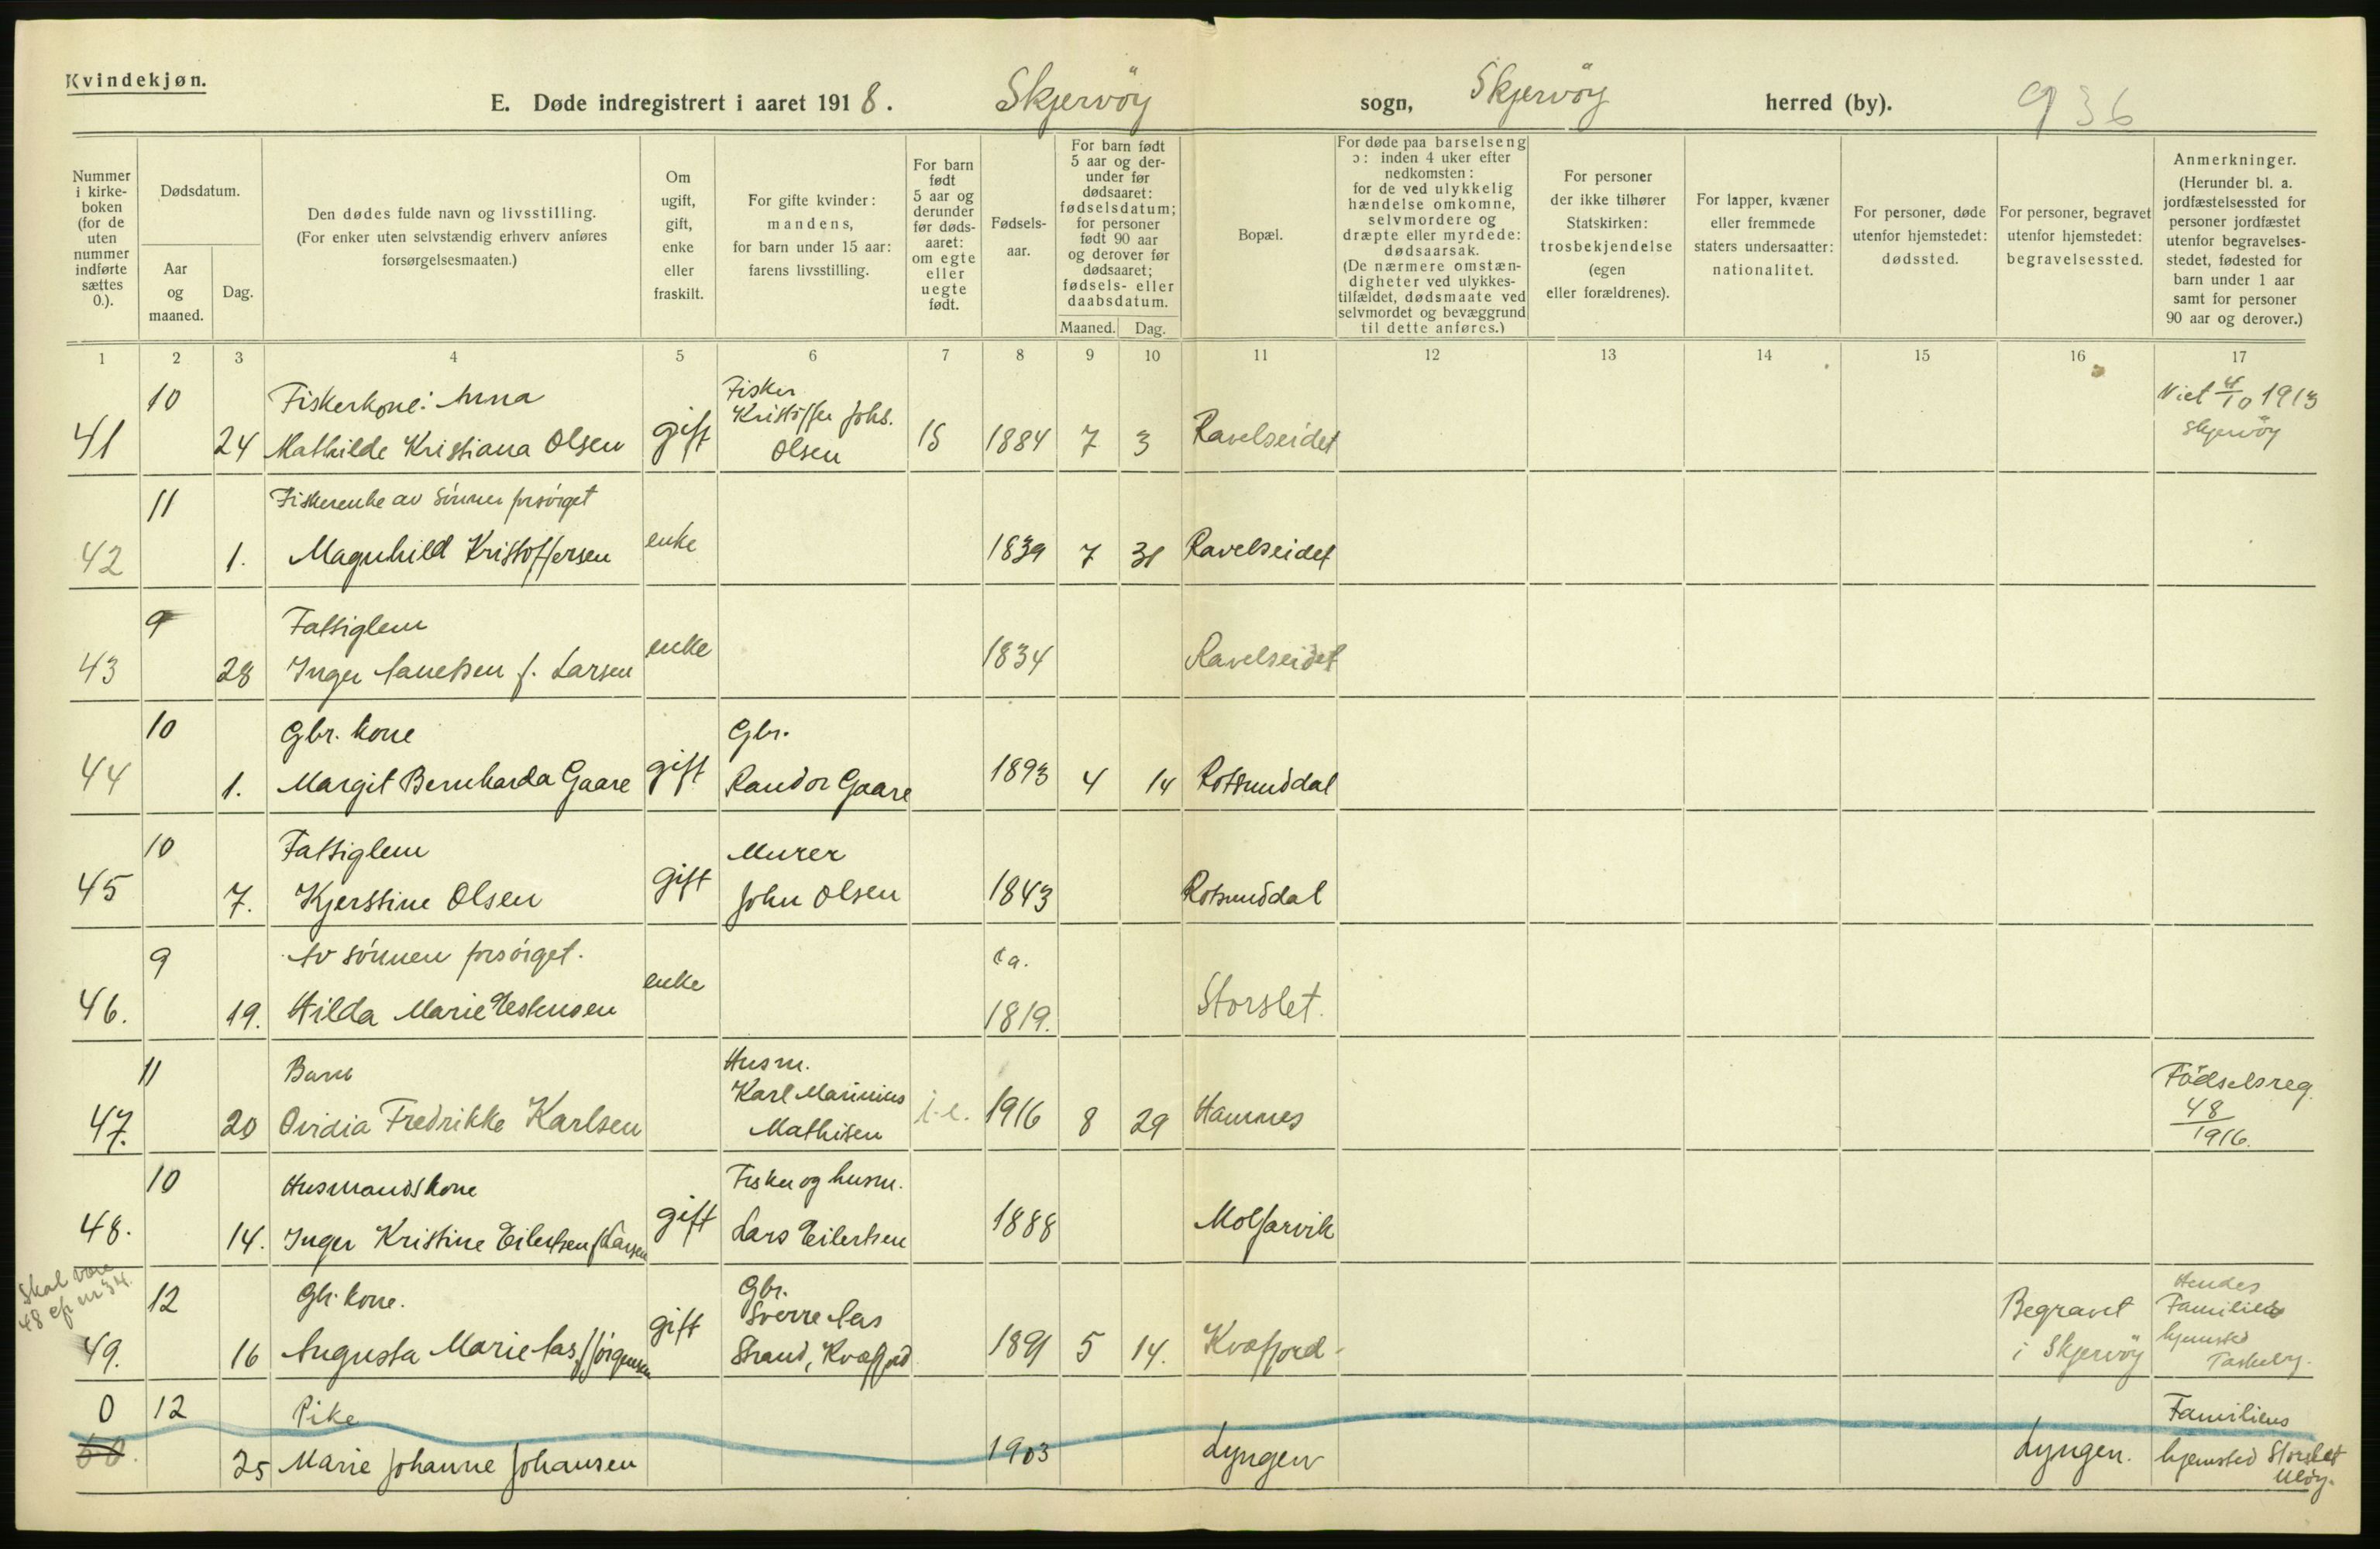 Kvindekjøn.
E. Døde indregistrert i aaret 1918. Skjervöy sogn, Skjervöy herred (by). 936
Nummer i kirkeboken (for de uten nummer indførte sættes 0.).
Dødsdatum.
Aar og maaned.
Dag.
Den dødes fulde navn og livsstilling.
(For enker uten selvstændig erhverv anføres forsørgelsesmaaten.)
Om ugift, gift, enke eller fraskilt.
For gifte kvinder: mandens, for barn under 15 aar: farens livsstilling.
For barn født 5 aar og derunder før dødsaaret: om egte eller uegte født.
Fødselsaar.
For barn født 5 aar og derunder før dødsaaret: fødselsdatum; for personer født 90 aar og derover før dødsaaret; fødsels- eller daabsdatum.
Maaned. Dag.
Bopæl.
For døde paa barselseng ɔ: inden 4 uker efter nedkomsten: for de ved ulykkelig hændelse omkomne, selvmordere og dræpte eller myrdede: dødsaarsak. (De nærmere omstændigheter ved ulykkestilfældet, dødsmaate ved selvmordet og bevæggrund til dette anføres.)
For personer der ikke tilhører Statskirken: trosbekjendelse (egen eller forældrenes).
For lapper, kvæner eller fremmede staters undersaatter: nationalitet.
For personer, døde utenfor hjemstedet: dødssted.
For personer, begravet utenfor hjemstedet: begravelsessted.
Anmerkninger. (Herunder bl. a. jordfæstelsessted for personer jordfæstet utenfor begravelsesstedet, fødested for barn under 1 aar samt for personer 90 aar og derover.)
1 2 3 4 5 6 7 8 9 10 11 12 13 14 15 16 17
10 Fiskerkone: Anna Fisker Viet 4/10 1913
41 24 Mathilde Kristiana Olsen gift Kristoffer Johs. Olsen 15 1884 7 3 Ravelseidet Skjervöy
11 Fiskerenke av Sönner forsörget
42 1. Magnhild Kristoffersen enke 1839 7 31 Ravelseidet
9 Fattiglem
43 28 Inger f. Larsen enke 1834 Ravelseidet
10 Gbr. kone Gbr.
44 1. Margit Bernharda Gaare gift Randor Gaare 1893 4 14 Rotsunddal
10 Fattiglem Murer
45 7. Kjerstine Olsen gift John Olsen 1843 Rotsunddal
9 Av sönnen forsörget. ca.
46. 19. Hilda Marie enke 1819. Storslet.
11 Barn Husm.
47. 20 Ovidia Fredrikke Karlsen Karl Marinius Mathisen i.e. 1916 8 29 Hamnes Födselsreg. 48/1916.
10 Husmandskone Fisker og husm.
48. 14. Inger Kristine Eilertsen f. Larsen gift Lars Eilertsen 1888
Skal være
48 cfr nr 34.
12 Gbr. kone. Gbr.
49. 16 Augusta Marie Aas, f. Jörgensen gift Sverre Aas Strand, Kvæfjord 1891 5 14. Kvæfjord Begravet i Skjervöy Hendes Familie hjemsted
0 12 Pike Familiens
50. 25 Marie Johanne Johansen 1903 Lyngen Lyngen. hjemsted Storslet Ulöy.